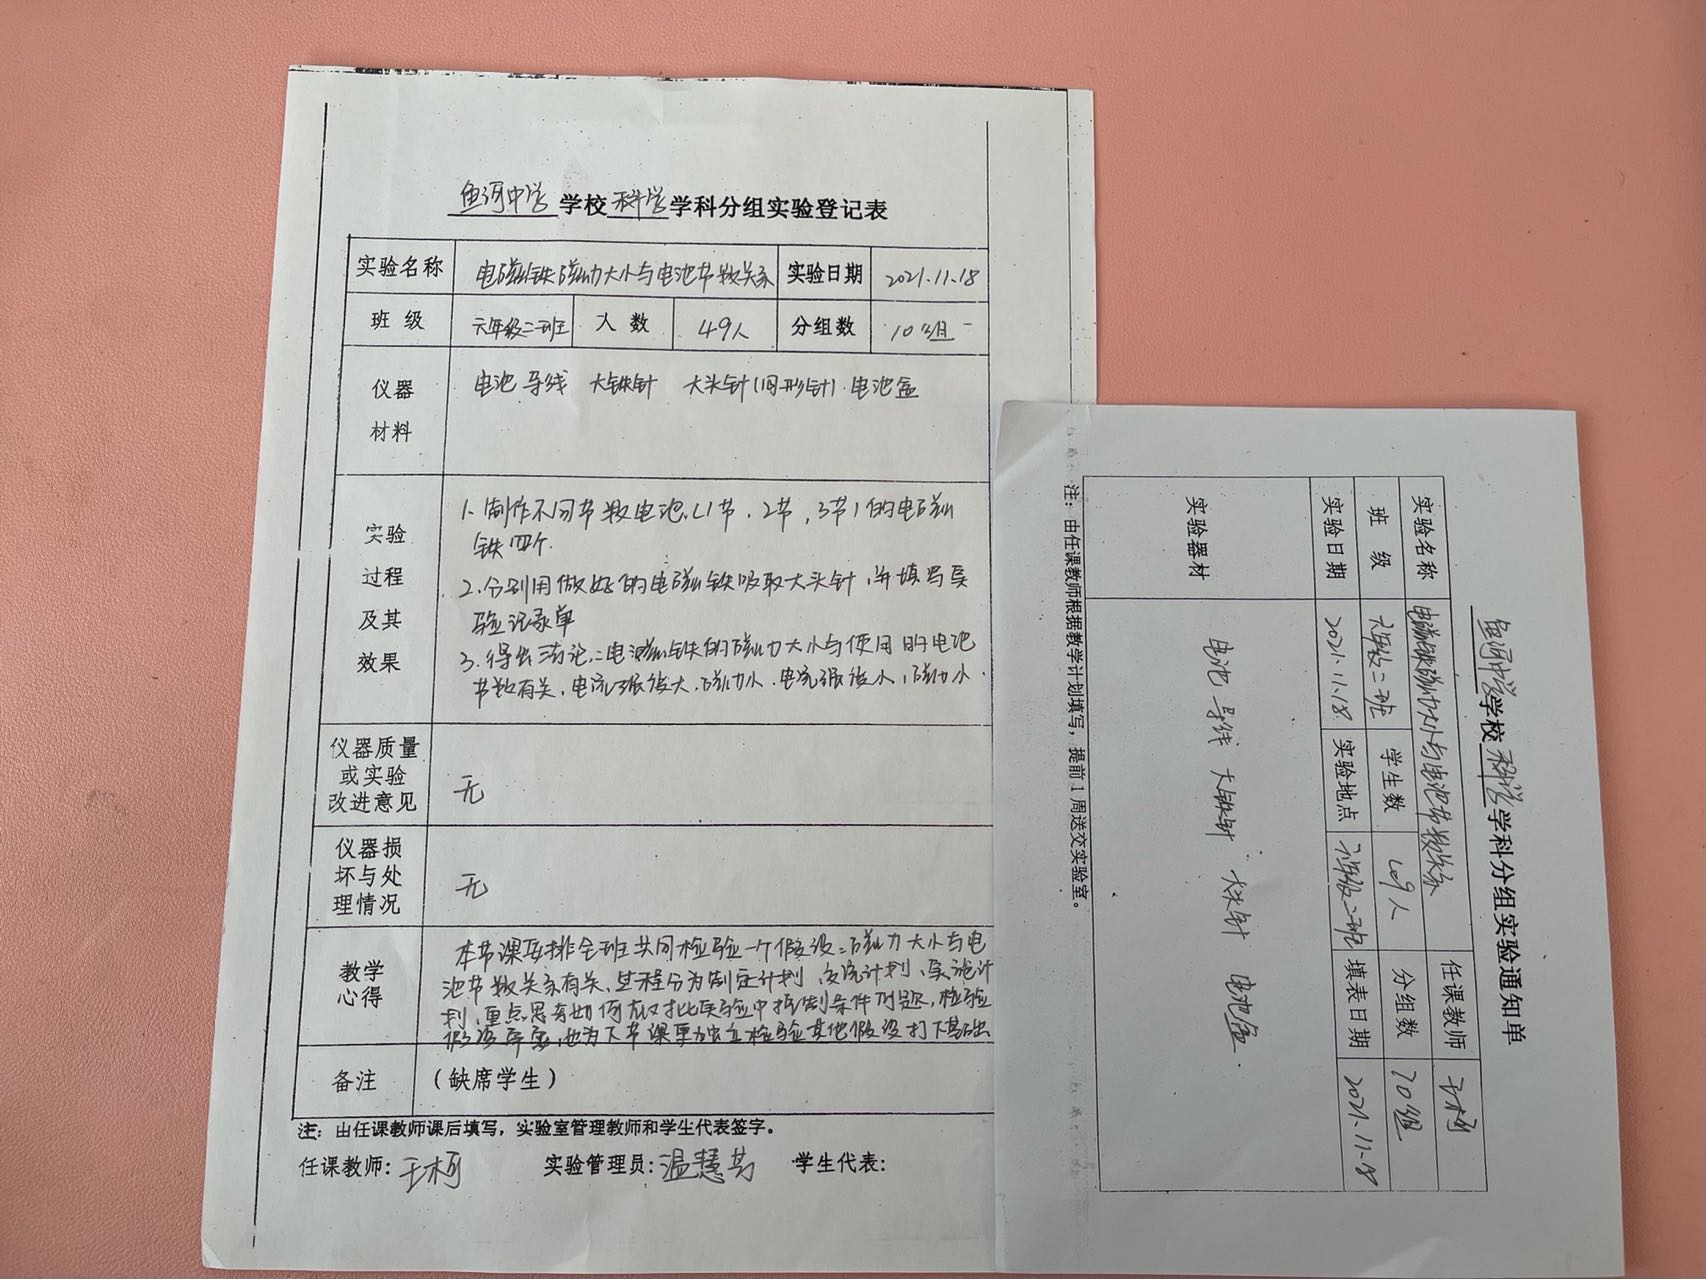 鱼河中学学校科学学科分组实验登记表
实验名称 电磁铁磁力大小与电池节数关系 实验日期 2021.11.18
班 级 六年级二班 人 数 49人 分组数 10组
仪器
材料
电池 导线 大铁针 大头针(回形针).电池盒
实验
过程
及其
效果
1.制作不同节数电池(1节.2节,3节)的电磁
铁四个.
2.分别用做好的电磁铁吸取大头针,并填写实
验记录单
3.得出结论:电磁铁的磁力大小与使用的电池
节数有关,电流强度大,磁力小.电流强度小,磁力小.
仪器质量
或实验
改进意见
无
仪器损
坏与处
理情况
无
教学
心得
本节课安排全班共同检验一个假设:磁力大小与电
池节数关系有关,过程分为制定计划,交流计划,实施计
划,重点思考如何在对比实验中控制条件问题,检验
假设,也为下节课更独立检验其他假设打下基础
备注 (缺席学生)
注: 由任课教师课后填写,实验室管理教师和学生代表签字。
任课教师: 王柯 实验管理员: 温慧芳 学生代表:
鱼河中学学校科学学科分组实验通知单
实验名称 电磁铁磁力大小与电池节数关系 任课教师 王柯
班 级 六年级二班 学生数 49人 分组数 10组
实验日期 2021.11.18. 实验地点 六年级二班 填表日期 2021.11.18
实验器材
电池 导线 大铁针 大头针 电池盒.
注: 由任课教师根据教学计划填写,提前1周送交实验室。